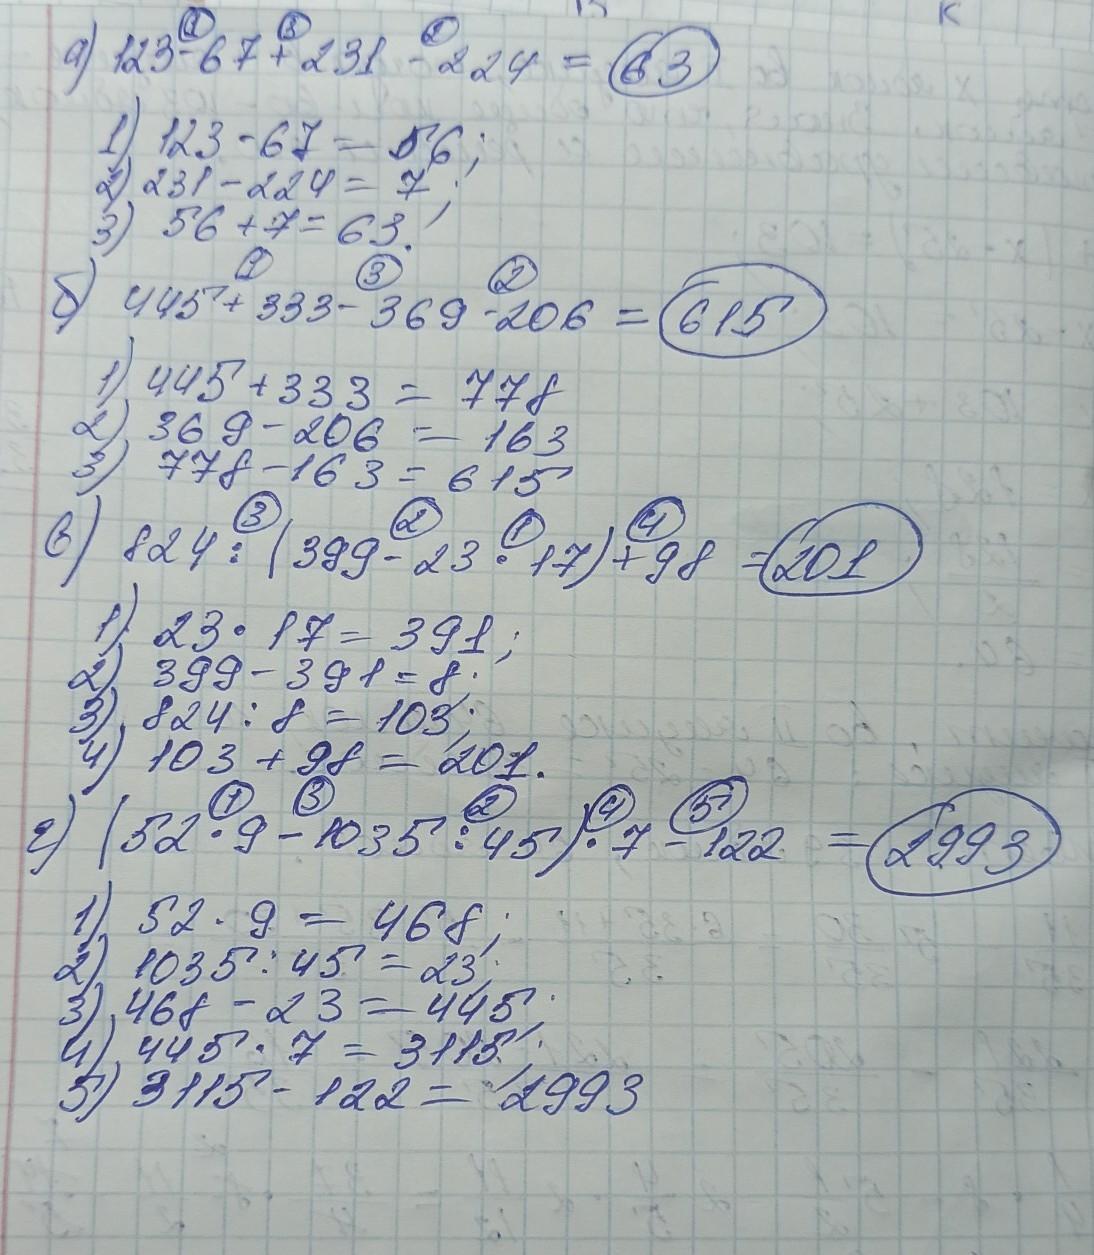 К
① ③ ②
а) 123-67+231-224 = 63
1) 123-67=56;
2) 231-224=7;
3) 56+7=63.
① ③ ②
б) 445+333-369-206 = 615
1) 445+333 = 778
2) 369-206 = 163
3) 778-163 = 615
③ ② ① ④
в) 824:(399-23·17)+98 = 201
1) 23·17=391;
2) 399-391=8;
3) 824:8=103;
4) 103+98=201.
① ③ ② ④ ⑤
г) (52·9-1035:45)·7-122 = 2993
1) 52·9=468;
2) 1035:45=23;
3) 468-23=445;
4) 445·7=3115;
5) 3115-122=2993